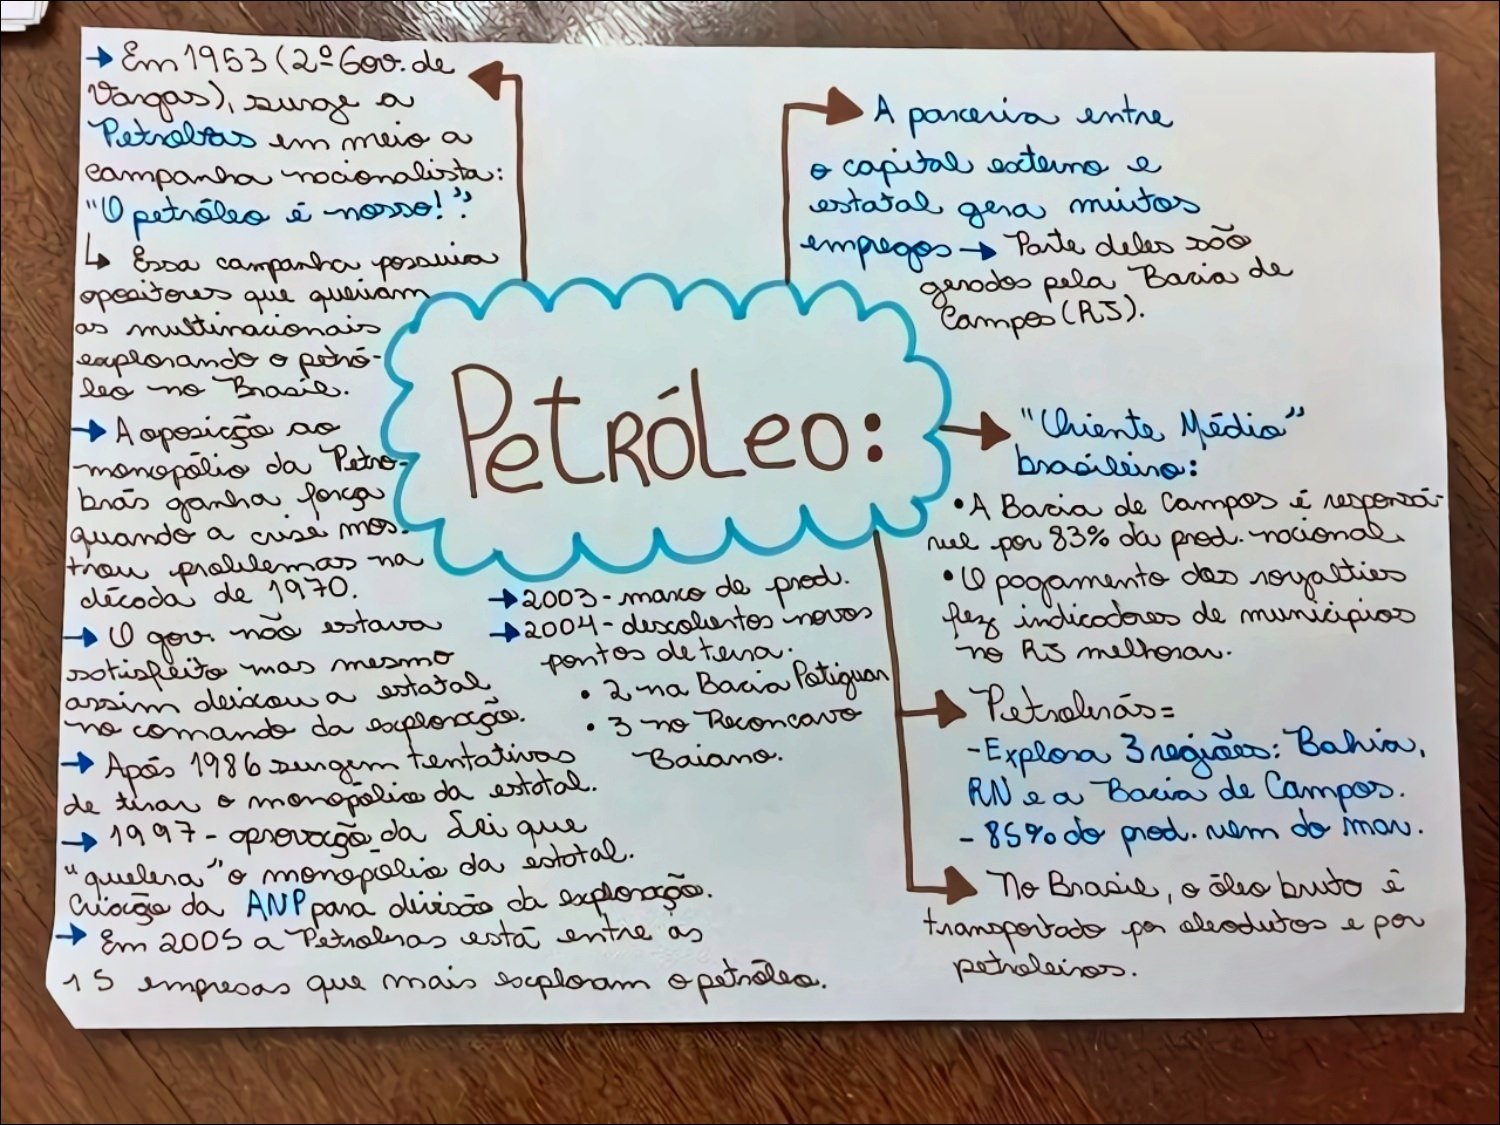 → Em 1953 (2º Gov. de
Vargas), surge a
Petrobras em meio a
campanha nacionalista:
"O petróleo é nosso!".
↳ Essa campanha possuia
opositores que queriam
as multinacionais
explorando o petró-
leo no Brasil.
→ A oposição ao
monopólio da Petro-
brás ganha força
quando a crise mos-
trou problemas na
década de 1970.
→ O gov. não estava
satisfeito mas mesmo
assim deixou a estatal
no comando da exploração.
→ Após 1986 surgem tentativas
de tirar o monopólio da estatal.
→ 1997 - aprovação da Lei que
"quebra" o monopólio da estatal.
Criação da ANP para divisão da exploração.
→ Em 2005 a Petrobras está entre as
15 empresas que mais exploram o petróleo.
Petróleo:
→ 2003 - marco de prod.
→ 2004 - descobertos novos
pontos de terra.
• 2 na Bacia Potiguar
• 3 no Reconcavo
Baiano.
A parceria entre
o capital externo e
estatal gera muitos
empregos → Parte deles são
gerados pela Bacia de
Campos (RJ).
"Oriente Médio"
brasileiro:
• A Bacia de Campos é responsá-
vel por 83% da prod. nacional.
• O pagamento dos royalties
fez indicadores de municípios
no RJ melhorar.
Petrobrás =
- Explora 3 regiões: Bahia,
RN e a Bacia de Campos.
- 85% do prod. vem do mar.
No Brasil, o óleo bruto é
transportado por oleodutos e por
petroleiros.